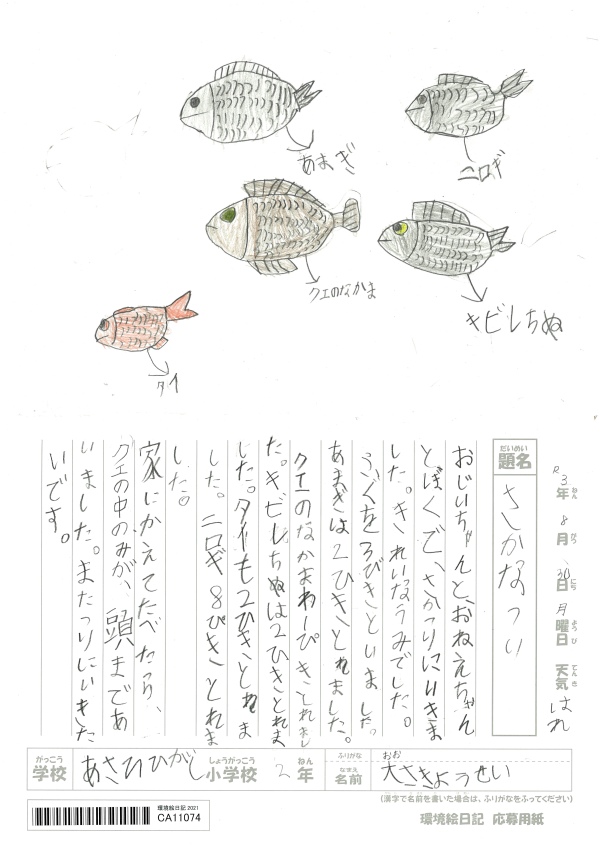 あまぎ
ニロギ
クエのなかま
キビレちぬ
タイ
R3年 8月 30日 月曜日 天気 はれ
ねん がつ にち ようび てんき
だいめい
題名
さかなつり
おじいちゃんと、おねえちゃん
とぼくで、さかつりにいきま
した。きれいなうみでした。
ふぐを3びきといました。
あまぎは2ひきとれました。
クエのなかまわーぴきとれまし
た。キビレちぬは2ひきとれま
した。タイも2ひきとれま
した。ニロギ8ぴきとれま
した。
家にかえてたべたら、
クエの中のみが、頭まであ
いました。またつりにいきた
いです。
がっこう しょうがっこう ねん ふりがな おお
学校 あさひひがし小学校 2年 なまえ 名前 大さきようせい
(漢字で名前を書いた場合は、ふりがなをふってください)
環境絵日記 2021
CA11074
環境絵日記 応募用紙